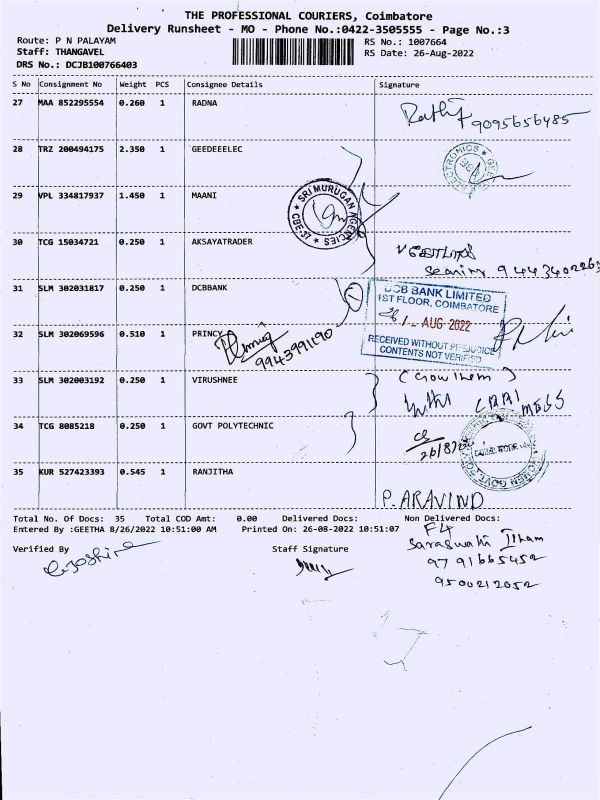 THE PROFESSIONAL COURIERS, Coimbatore
Delivery Runsheet - MO - Phone No.:0422-3505555 - Page No.:3
Route: P N PALAYAM
RS No.: 1007664
Staff: THANGAVEL
RS Date: 26-Aug-2022
DRS No.: DCJB100766403
S No Consignment No Weight PCS Consignee Details Signature
27 MAA 852295554 0.260 1 RADNA
9095656485
28 TRZ 200494175 2.350 1 GEEDEEELEC
29 VPL 334817937 1.450 1 MAANI
★ SRI MURUGAN AGENCIES ★ CBE-37
30 TCG 15034721 0.250 1 AKSAYATRADER
9443402263
31 SLM 302031817 0.250 1 DCBBANK
DCB BANK LIMITED
1ST FLOOR, COIMBATORE
AUG 2022
RECEIVED WITHOUT PREJUDICE
CONTENTS NOT VERIFIED
32 SLM 302069596 0.510 1 PRINCY
9943991190
33 SLM 302003192 0.250 1 VIRUSHNEE
34 TCG 8085218 0.250 1 GOVT POLYTECHNIC
26/8/22
35 KUR 527423393 0.545 1 RANJITHA
P. ARAVIND
Total No. Of Docs: 35 Total COD Amt: 0.00 Delivered Docs: Non Delivered Docs:
Entered By :GEETHA 8/26/2022 10:51:00 AM Printed On: 26-08-2022 10:51:07
F4
9791665452
9500212052
Verified By
Staff Signature